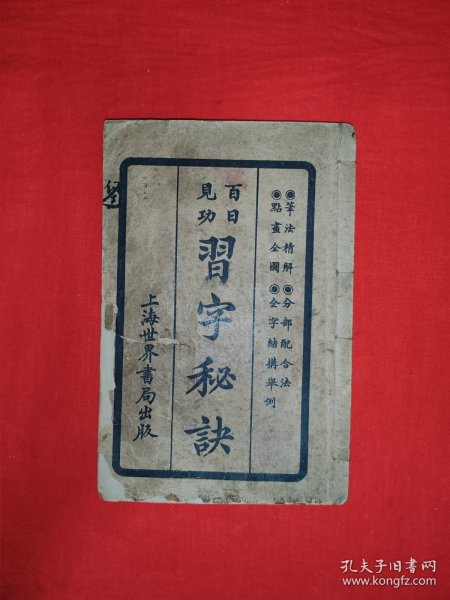 ◉筆法精解◉分部配合法
◉點畫全圖◉全字結構舉例
百日
見功
習字秘訣
上海世界書局出版
孔夫子旧书网
www.kongfz.com